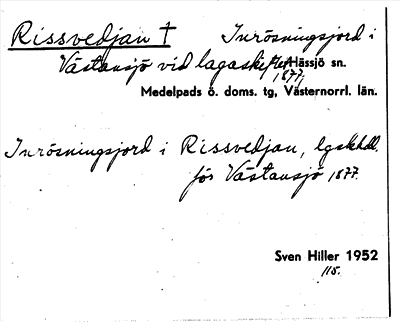 Rissvedjan † Inrösningsjord i
Västansjö vid lagaskiftet Hässjö sn.
1877.
Medelpads ö. doms. tg, Västernorrl. län.
Inrösningsjord i Rissvedjan, lgskhdl.
för Västansjö 1877.
Sven Hiller 1952
115.